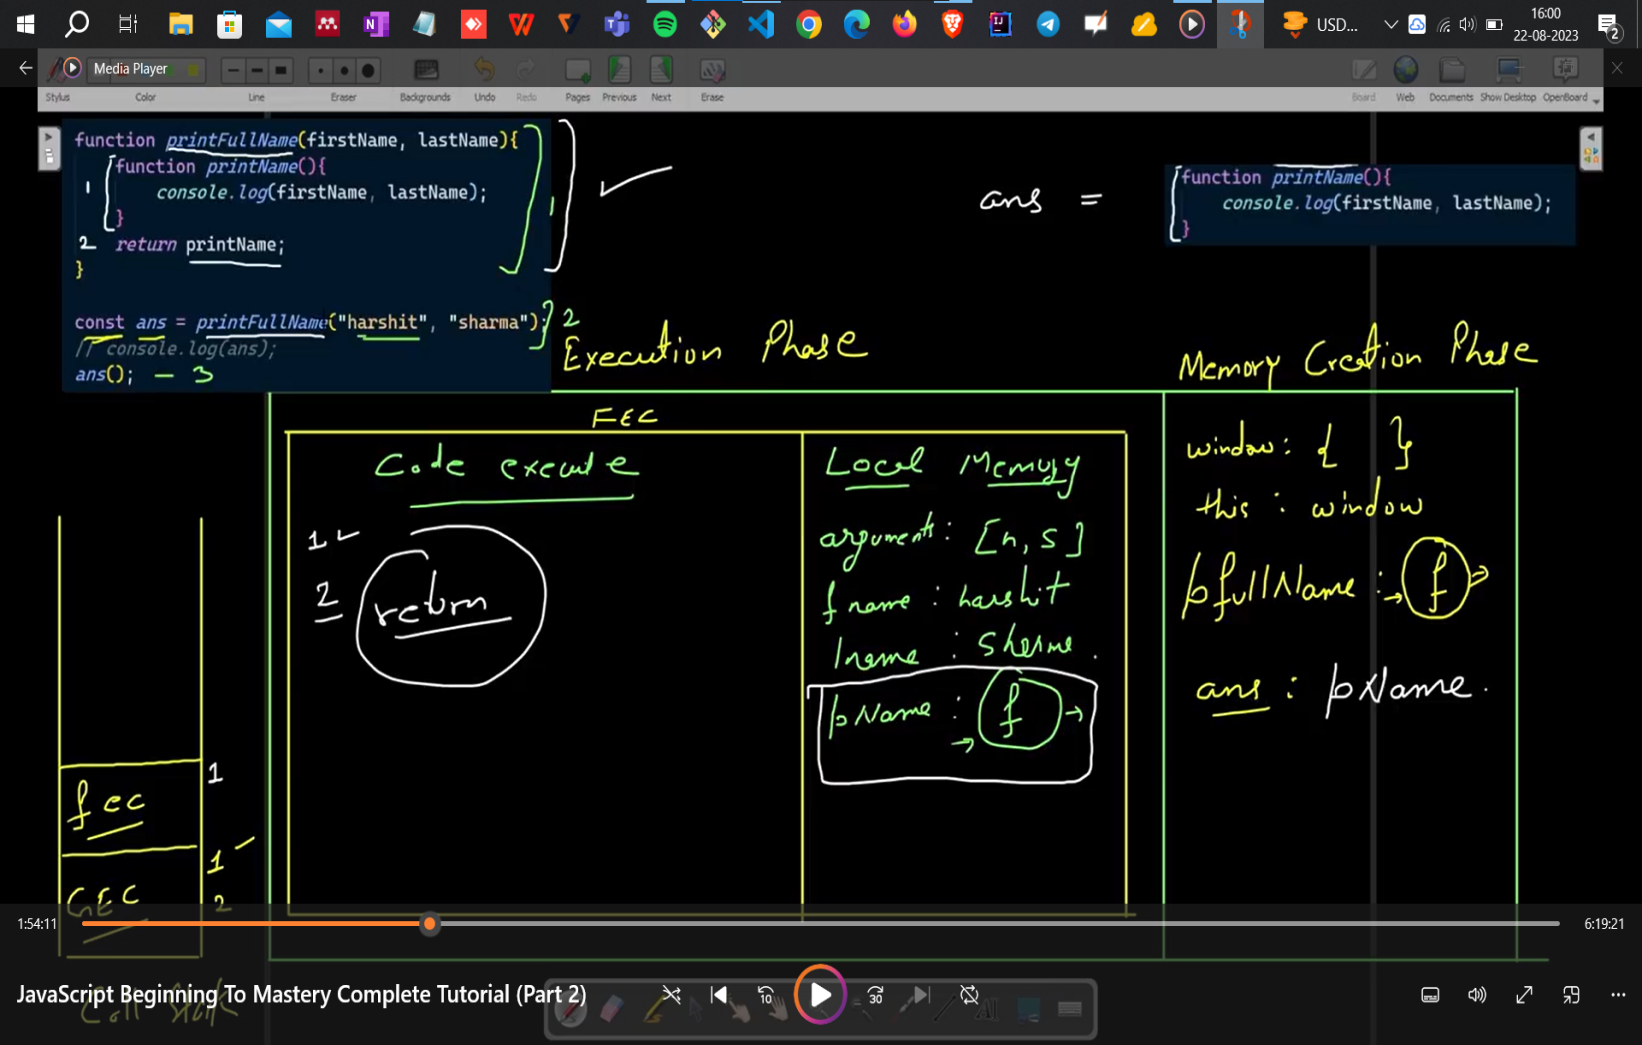 USD...
16:00
22-08-2023
2
Media Player
Stylus Color Line Eraser Backgrounds Undo Redo Pages Previous Next Erase Board Web Documents Show Desktop OpenBoard
function printFullName(firstName, lastName){
1 function printName(){
console.log(firstName, lastName);
}
2 return printName;
}
const ans = printFullName("harshit", "sharma"); 2
// console.log(ans);
ans(); – 3
1
ans =
function printName(){
console.log(firstName, lastName);
}
Execution Phase
Memory Creation Phase
FEC
Code execute
1
2 return
Local Memory
arguments: [h, s]
fname : harshit
lname : Sharma
pName : f
window: { }
this : window
pfullName : f
ans : pName
fec 1
GEC 1
2
Call Stack
1:54:11
6:19:21
JavaScript Beginning To Mastery Complete Tutorial (Part 2)
10
30